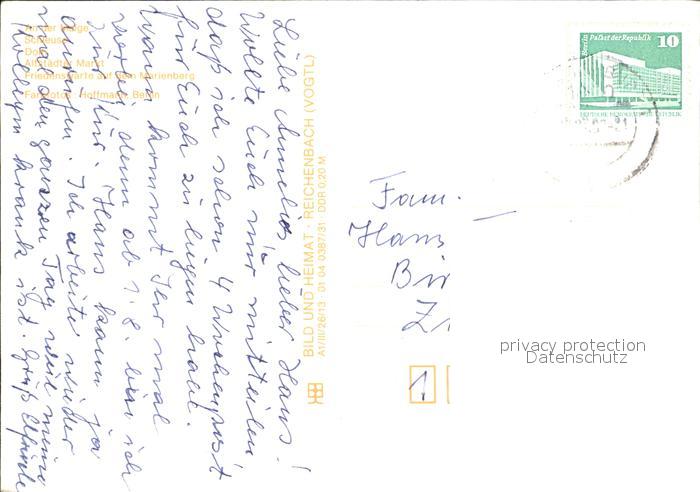 An der Fähre
Schleuse
Dom
Altstädter Markt
Friedenswarte auf dem Marienberg
Farbfotos: Hoffmann, Berlin
Liebe Annelies, lieber Haus!
Wollte Euch nur mitteilen
daß ich schon 4 Wochenpost
für Euch zu liegen habe.
Wann kommt Ihr mal
denn ab 1.8. bin ich
Zur Kur. Hans kann ja
anrufen. Ich arbeite wieder
den ganzen Tag weil meine
Kollegin krank ist. Gruß Elfriede
BILD UND HEIMAT · REICHENBACH (VOGTL)
A1/III/26/13 01 04 0387/31 DDR 0,20 M
Berlin Palast der Republik 10
DEUTSCHE DEMOKRATISCHE REPUBLIK
Fam.
Hans
1
privacy protection
Datenschutz